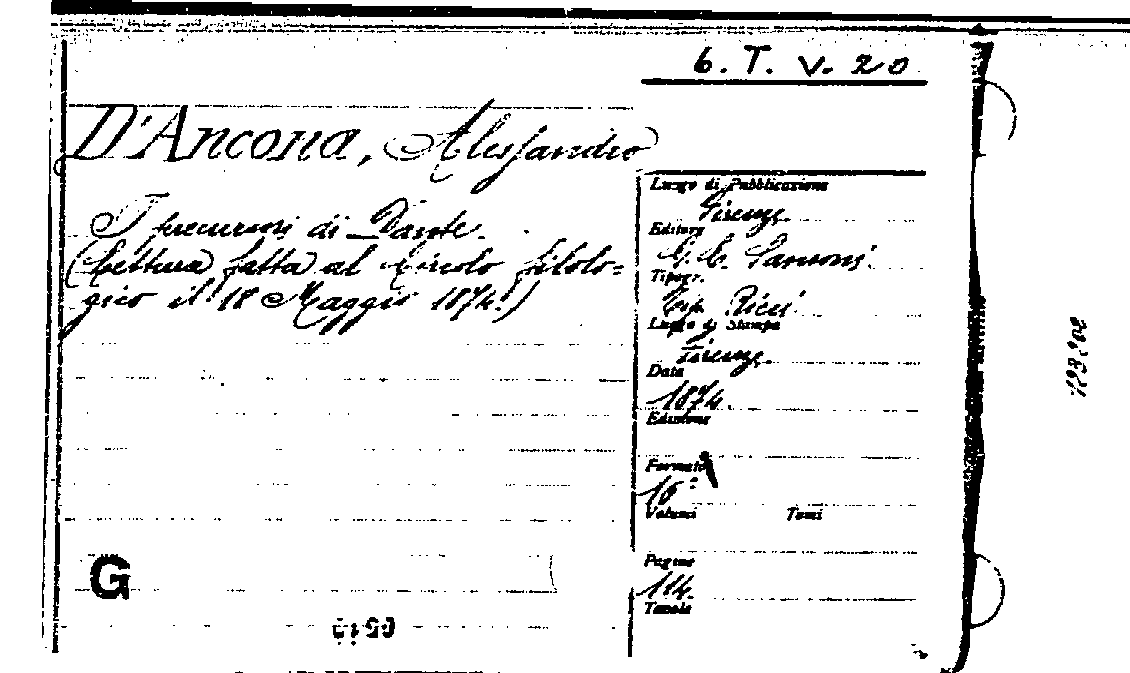 6. T. V. 20
D'Ancona, Alessandro
I precursori di Dante.
(Lettura fatta al Circolo filolo=
gico il 18 Maggio 1874.)
Luogo di Pubblicazione
Firenze.
Editore
G. C. Sansoni.
Tipogr.
Tip. Ricci
Luogo di Stampa
Firenze.
Data
1874.
Edizione
Formato
16°
Volumi Tomi
Pagine
114.
Tavole
G